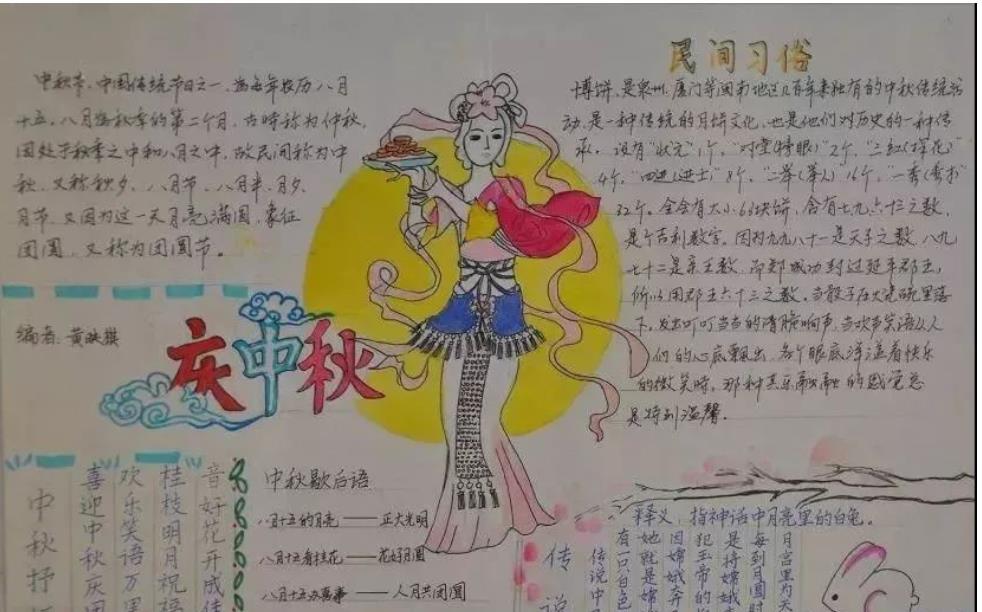 中秋节,中国传统节日之一,为每年农历八月
十五。八月为秋季的第二个月,古时称为仲秋,
因处于秋季之中和八月之中,故民间称为中
秋,又称秋夕、八月节、八月半、月夕、
月节,又因为这一天月亮满圆,象征
团圆,又称为团圆节。
编者:黄
庆中秋
民间习俗
博饼,是泉州、厦门等闽南地区几百年来独有的中秋传统活
动,是一种传统的月饼文化,也是他们对历史的一种传
承。设有"状元"1个,"对堂(榜眼)"2个,"三红(探花)"
4个,"四进(进士)"8个,"二举(举人)"16个,一秀(秀才)
32个。全会有大小63块饼,含有七九六十三之数,
是个吉利数字。因为九九八十一是天子之数,八九
七十二是亲王数,而郑成功封过延平郡王,
所以用郡王六十三之数。当骰子在大瓷碗里落
下,发出叮叮当当的清脆响声,当欢声笑语从人
们的心底飘出,各个眼底洋溢着快乐
的微笑时,那种其乐融融的感觉总
是特别温馨。
中秋抒
喜迎中秋庆团
欢乐笑语万
桂枝明月祝福
音好花开成
中秋歇后语
八月十五的月亮——正大光明
八月十五看桂花——花好月圆
八月十五办喜事——人月共团圆
传说
释义,指神话中月亮里的白兔。
传说中
有一只白色
她就是嫦
因嫦娥奔
犯玉帝的
是将嫦娥
每到月圆时
月宫里为天